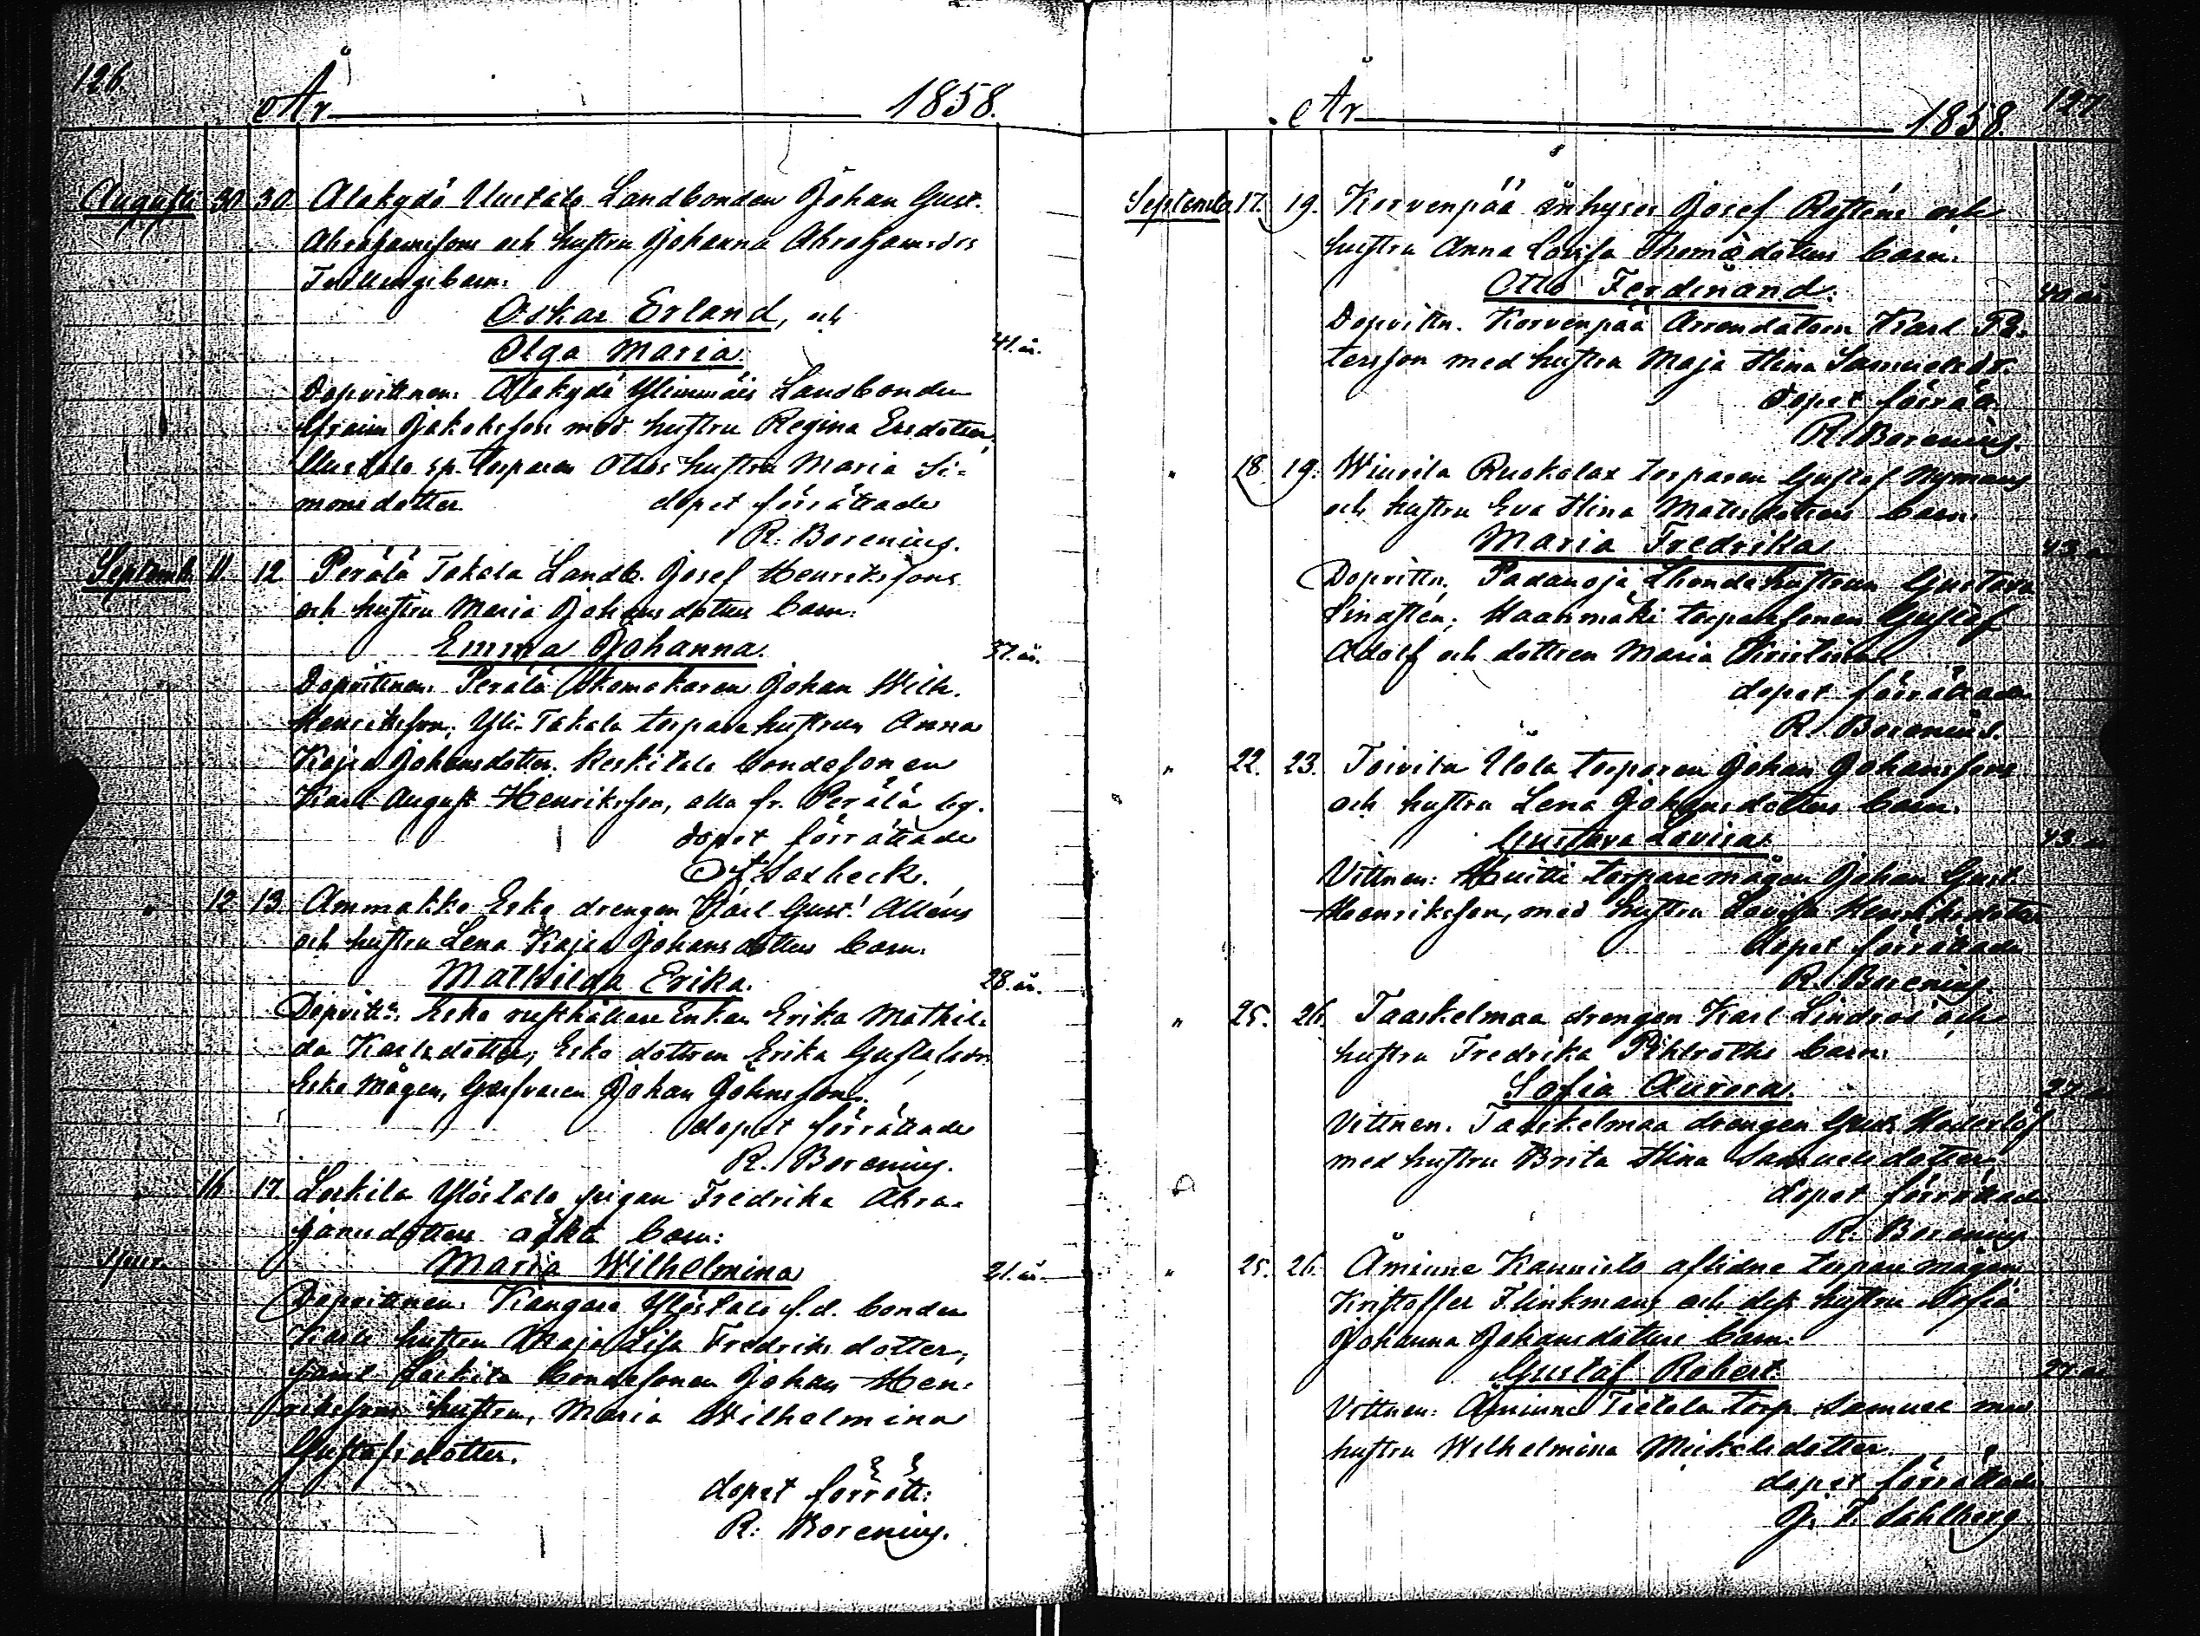 126.
År 1858.
Augusti 30. 30. Alakydö Uustalo Landbonden Johan Gust.
Abrahamsson och hustru Johanna Abrahamsdrs
Tvillingebarn:
Oskar Erland, och
Olga Maria. 41. år.
Dopvittnen: Alakydö Ylimmäis Landbonden
Efraim Jakobsson med hustru Regina Ersdotter,
Uustalo sp. torparen Ottos hustru Maria Si=
monsdotter. dopet förrättade
R. Borenius.
Septemb. 11 12 Perälä Takala Landb. Josef Henrikssons
och hustru Maria Johansdotters barn:
Emma Johanna. 37. år.
Dopvittnen: Perälä Skomakaren Johan Wilh.
Henriksson, Yli-Takala torparehustrun Anna
Kajsa Johansdotter. Keskitalo bondesonen
Karl August Henriksson, alla fr. Perälä by.
dopet förrättade
" 12 13. Ammakko Erko drengen Karl Gust. Alléns
och hustru Lena Kajsa Johansdotters barn:
Mathilda Erika. 28. år.
Dopvittn: Erko rusthållare Enkan Erika Mathil=
da Karlsdotter, Erko dottren Erika Gustafsdr.
Erko Mågen, Garfvaren Johan Johnsson.
dopet förrättade
R. Borenius.
16 17. Loskila Yöstalo pigan Fredrika Abra=
hamsdotters oäkta barn:
Maria Wilhelmina 21. år.
Dopvittnen: Kangare Yöstalo f.d. bonden
Karls hustru Maja Lisa Fredriksdotter,
samt Loskila bondesonen Johan Hen=
rikssons hustru, Maria Wilhelmina
Gustafsdotter.
dopet förrätt:
R. Borenius.
127.
År 1858.
September 17. 19. Korvenpää Inhyses Josef Rosténs och
hustru Anna Lovisa Thomædotters barn:
Otto Ferdinand. 40 år
Dopvittn. Korvenpää Arrendatorn Karl Pe=
tersson med hustru Maja Stina Samuelsdr.
dopet förrätt
R. Borenius.
" 18. 19. Wiurila Ruokolax torparen Gustaf Nymans
och hustru Eva Stina Mattsdotters barn:
Maria Fredrika 43. år
Dopvittn. Padanoja hustrun Gustava
Haanmäki torparesonen Gustaf
Adolf och dottren Maria Kristina
dopet förrättade
R. Borenius.
" 22. 23. Toivila Ilola torparen Johan Johanssons
och hustru Lena Johansdotters barn:
Gustava Lovisa. 43.
Vittnen: Huitti torparemågen Johan Gust.
Henriksson, med hustru Lovisa Henriksdotter
dopet förrättade
R. Borenius.
" 25. 26. Taaskelmaa drengen Karl Lindros och
hustru Fredrika Pihlroths barn:
Sofia Aurora. 27
Vittnen. Taaskelmaa drengen Gust. Hederlöf
med hustru Brita Stina Samuelsdotter.
dopet förrättade
R. Borenius
" 25. 26. Åminne Kannisto aflidne torparemågen
Kristoffer Flinkmans och dess hustru Sofia
Johanna Johansdotters barn:
Gustaf Robert. 27
Vittnen: Åminne Tietola torp. Samuel med
hustru Wilhelmina Mickelsdotter.
dopet förrättade
J. F. Sahlberg